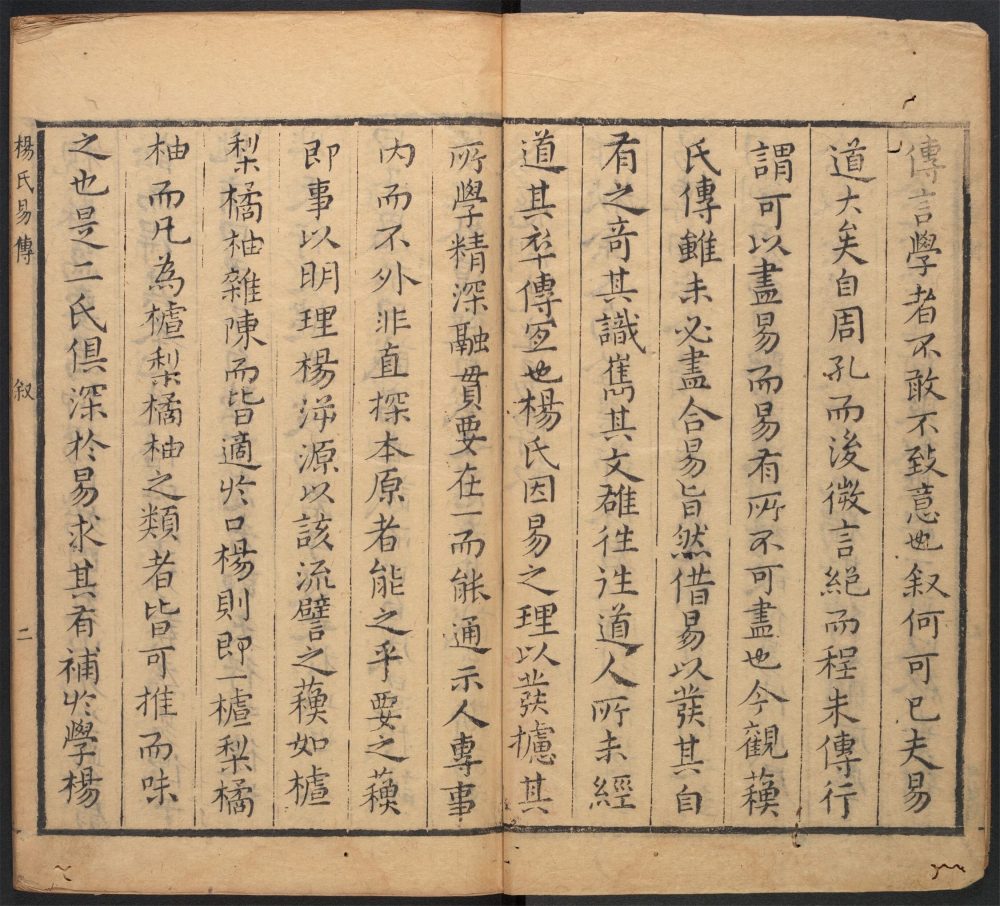 傳言學者不敢不致意也叙何可已夫易
道大矣自周孔而後微言絕而程朱傳行
謂可以盡易而易有所不可盡也今觀蘓
氏傳雖未必盡合易旨然借易以發其自
有之竒其識雋其文雄徃徃道人所未經
道其卒傳宜也楊氏因易之理以發攄其
所學精深融貫要在一而能通示人專事
内而不外非直探本原者能之乎要之蘓
即事以明理楊泝源以該流譬之蘓如樝
梨橘柚雜陳而皆適於口楊則即一樝梨橘
柚而凡為樝梨橘柚之類者皆可推而味
之也是二氏俱深於易求其有補於學楊
楊氏易傳 叙 二